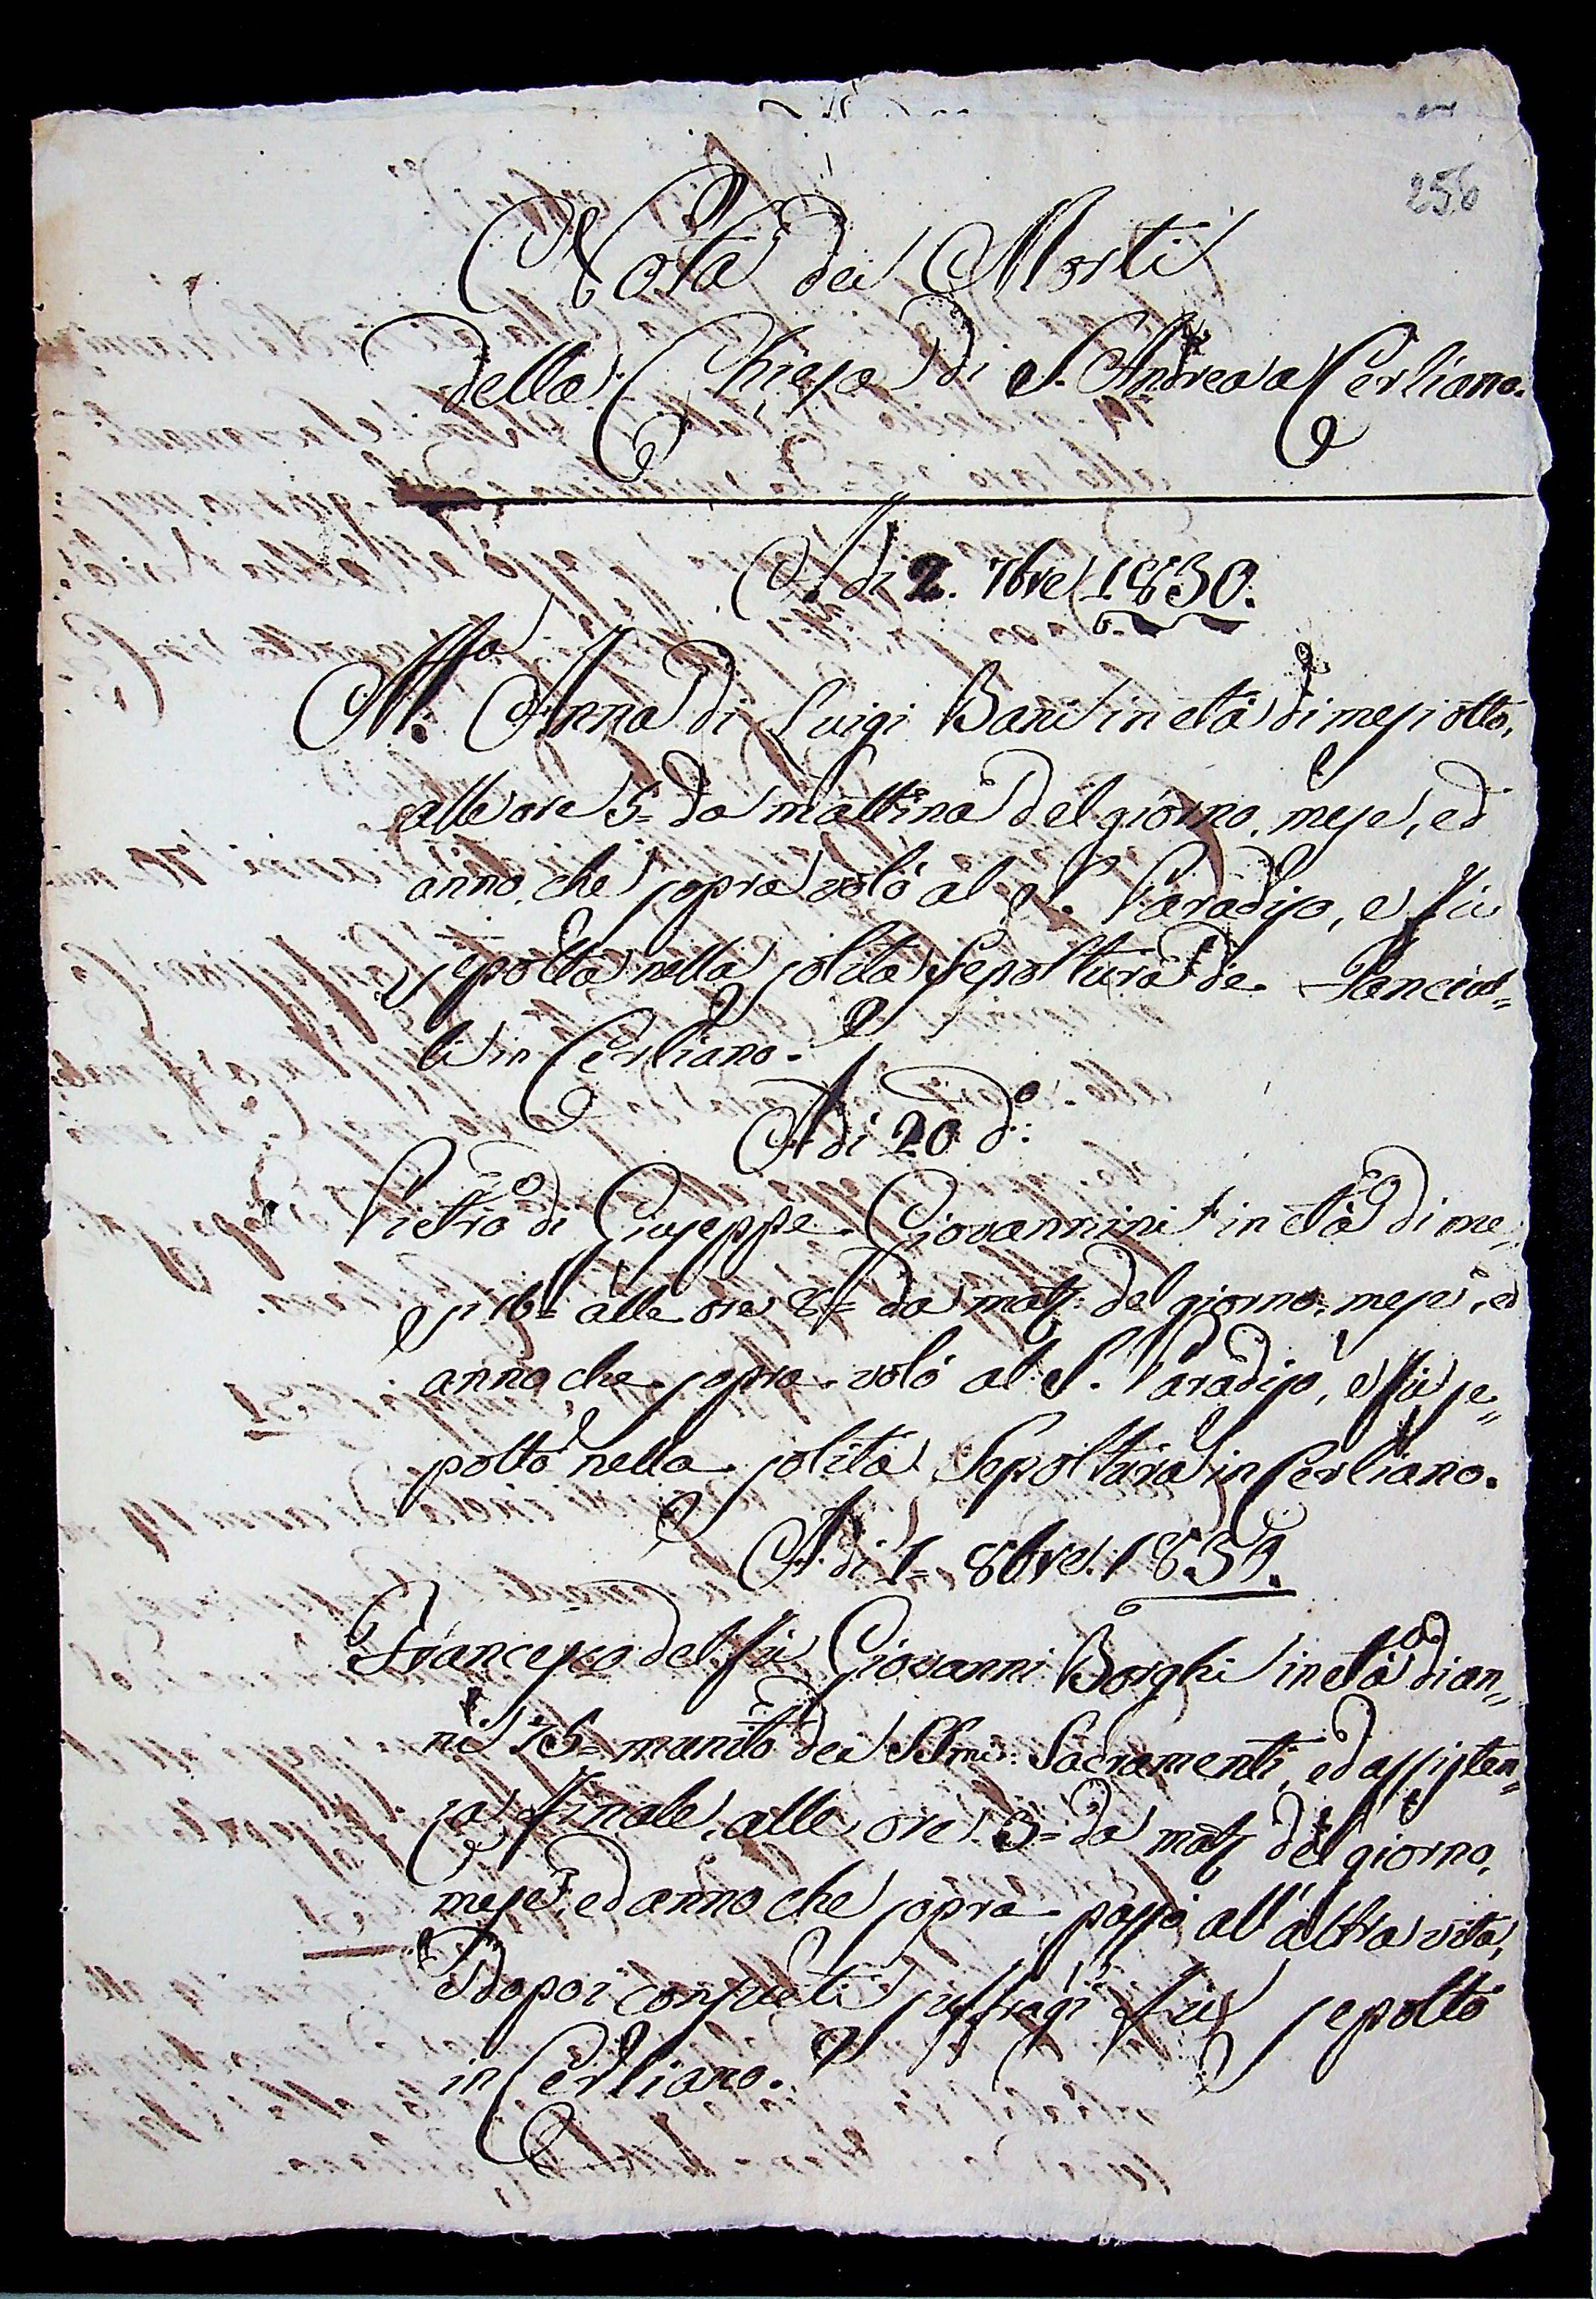 256
Nota dei Morti
della Chiesa di S. Andrea a Cerliano.
A di 2. 7bre 1830.
M.a Anna di Luigi Bani in età di mesi otto,
alle ore 5= da mattina del giorno, mese, ed
anno, che sopra volò al S. Paradiso, e fù
sepolta nella solita Sepoltura de Fanciul=
li in Cerliano.
A di 20 d.o
Pietro di Giuseppe Giovannini in età di me„
si 16= alle ore 8= da matt. del giorno, mese, ed
anno che sopra volò al S. Paradiso, e fù se„
polto nella solita Sepoltura in Cerliano.
A di 1= 8bre. 183
Francesco del fù Giovanni Borghi in età di an„
ni 75= munito dei SSmi: Sacramenti, ed assisten=
za finale, alle ore 3= da matt. del giorno,
mese, ed anno che sopra passò all'altra vita,
e dopo i consueti suffragi fù sepolto
in Cerliano.